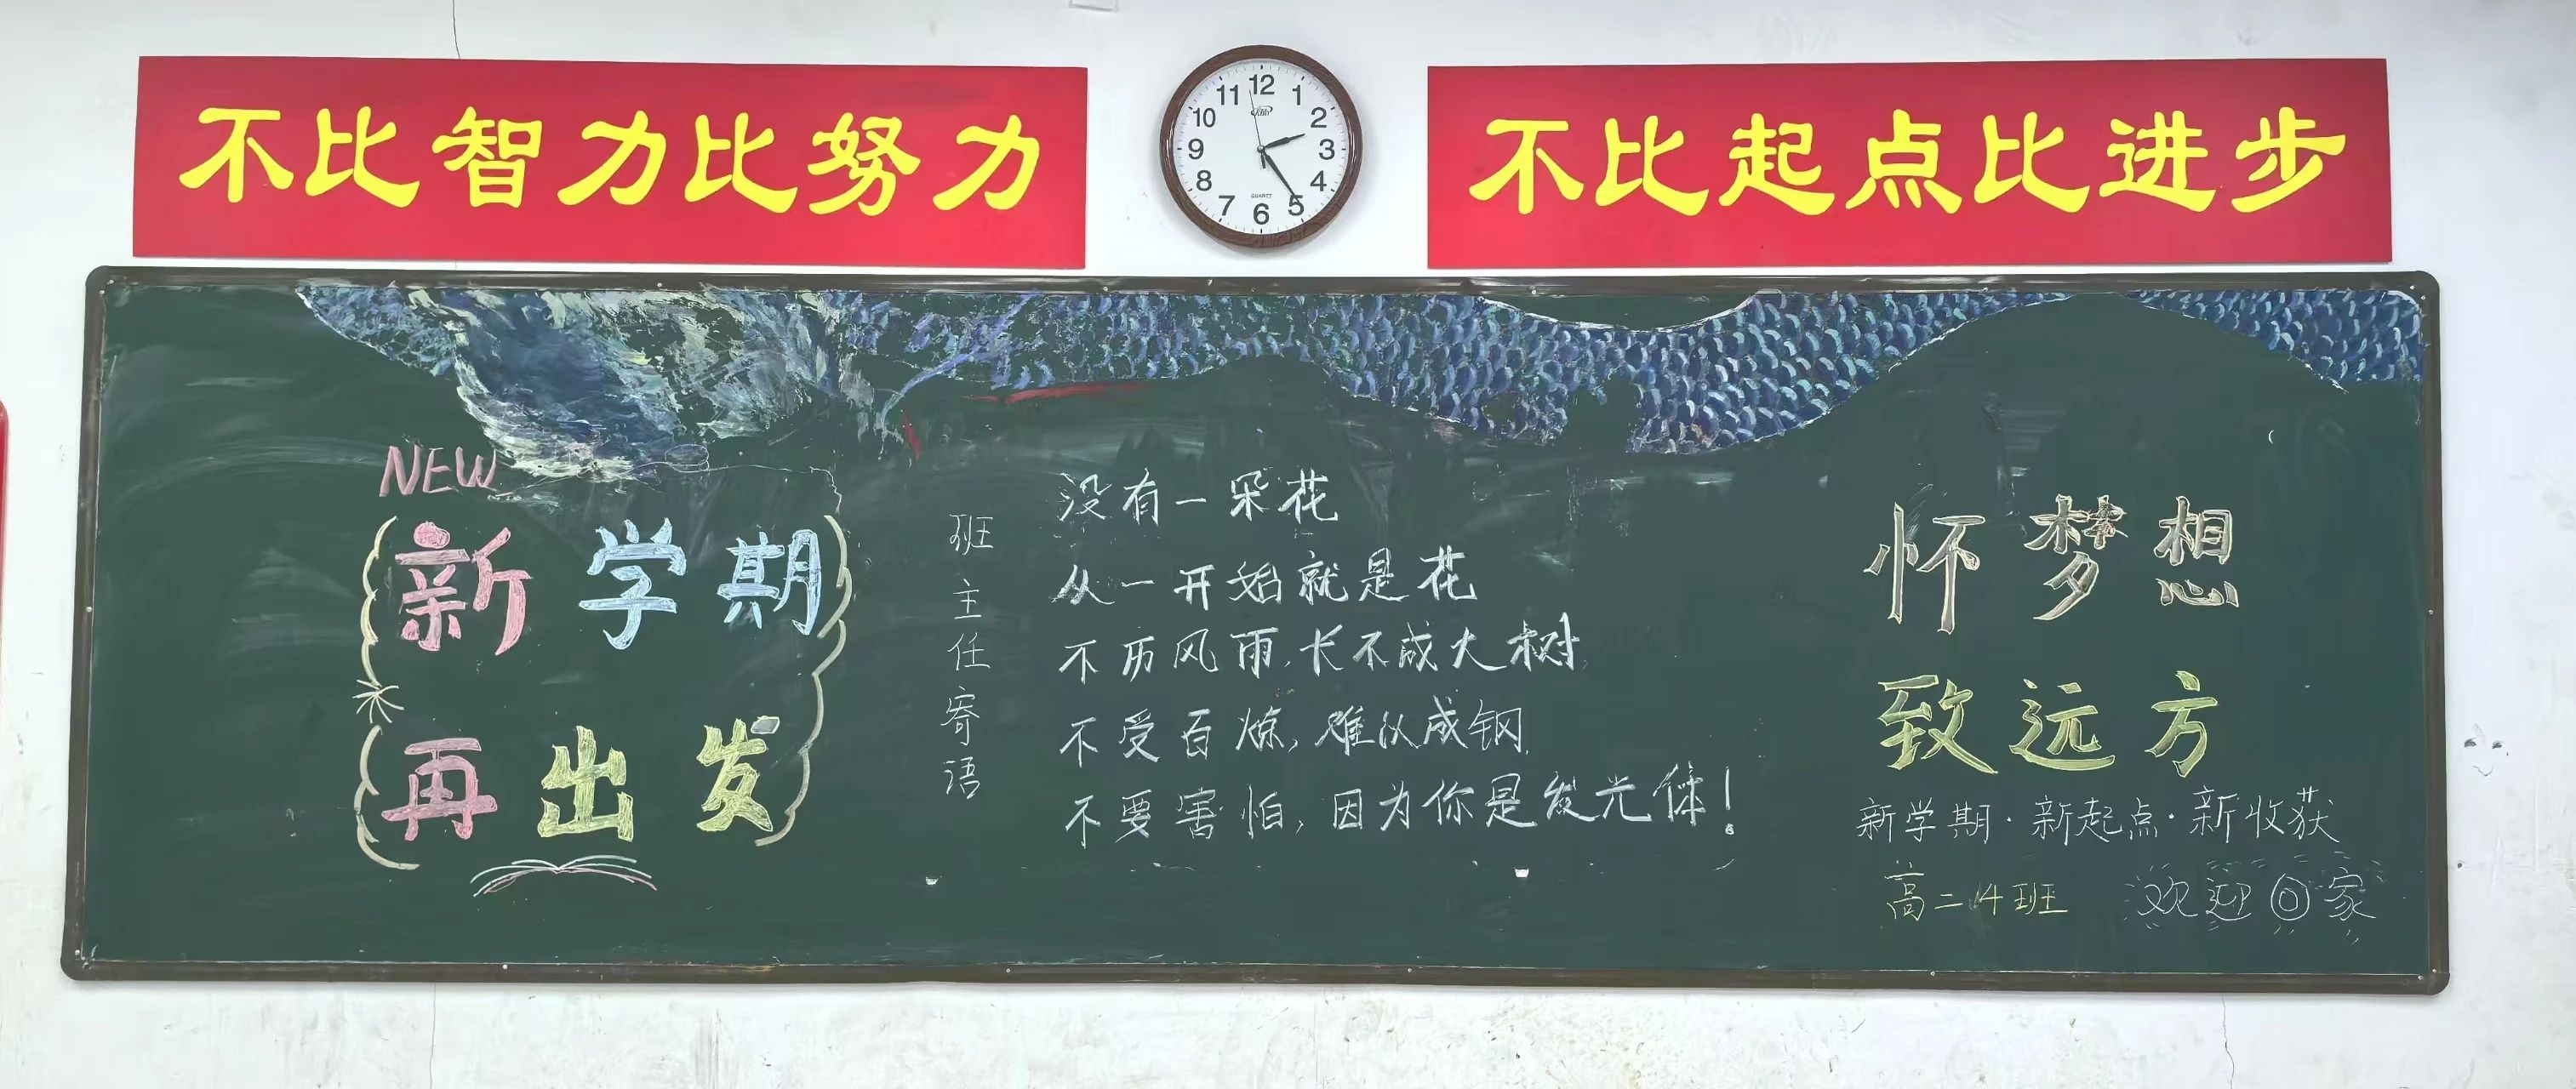 不比智力比努力
12
11 1
10 2
9 3
8 4
7 5
6
QUARTZ
不比起点比进步
NEW
新学期
再出发
班主任寄语
没有一朵花
从一开始就是花
不历风雨,长不成大树,
不受百炼,难以成钢,
不要害怕,因为你是发光体!
怀梦想
致远方
新学期·新起点·新收获
高二14班 欢迎回家